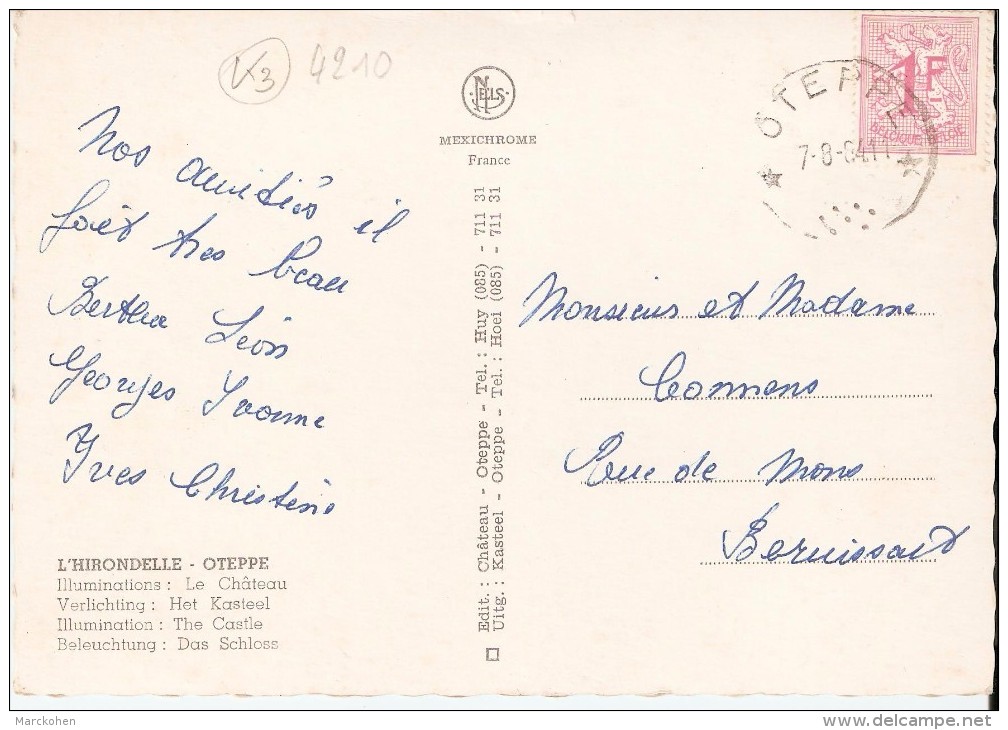 V3 4210
NELS
MEXICHROME
France
OTEPPE
7-8-64 11
1F
BELGIQUE BELGIE
Nos amitiés il
fait tres beau
Bertha Léon
Georges Yvonne
Yves Christine
Monsieur et Madame
Rue de Mons
Bernissart
Edit. : Château - Oteppe - Tel. : Huy (085) - 711 31
Uitg. : Kasteel - Oteppe - Tel. : Hoei (085) - 711 31
L'HIRONDELLE - OTEPPE
Illuminations : Le Château
Verlichting : Het Kasteel
Illumination : The Castle
Beleuchtung : Das Schloss
Marckohen
delcampe.net